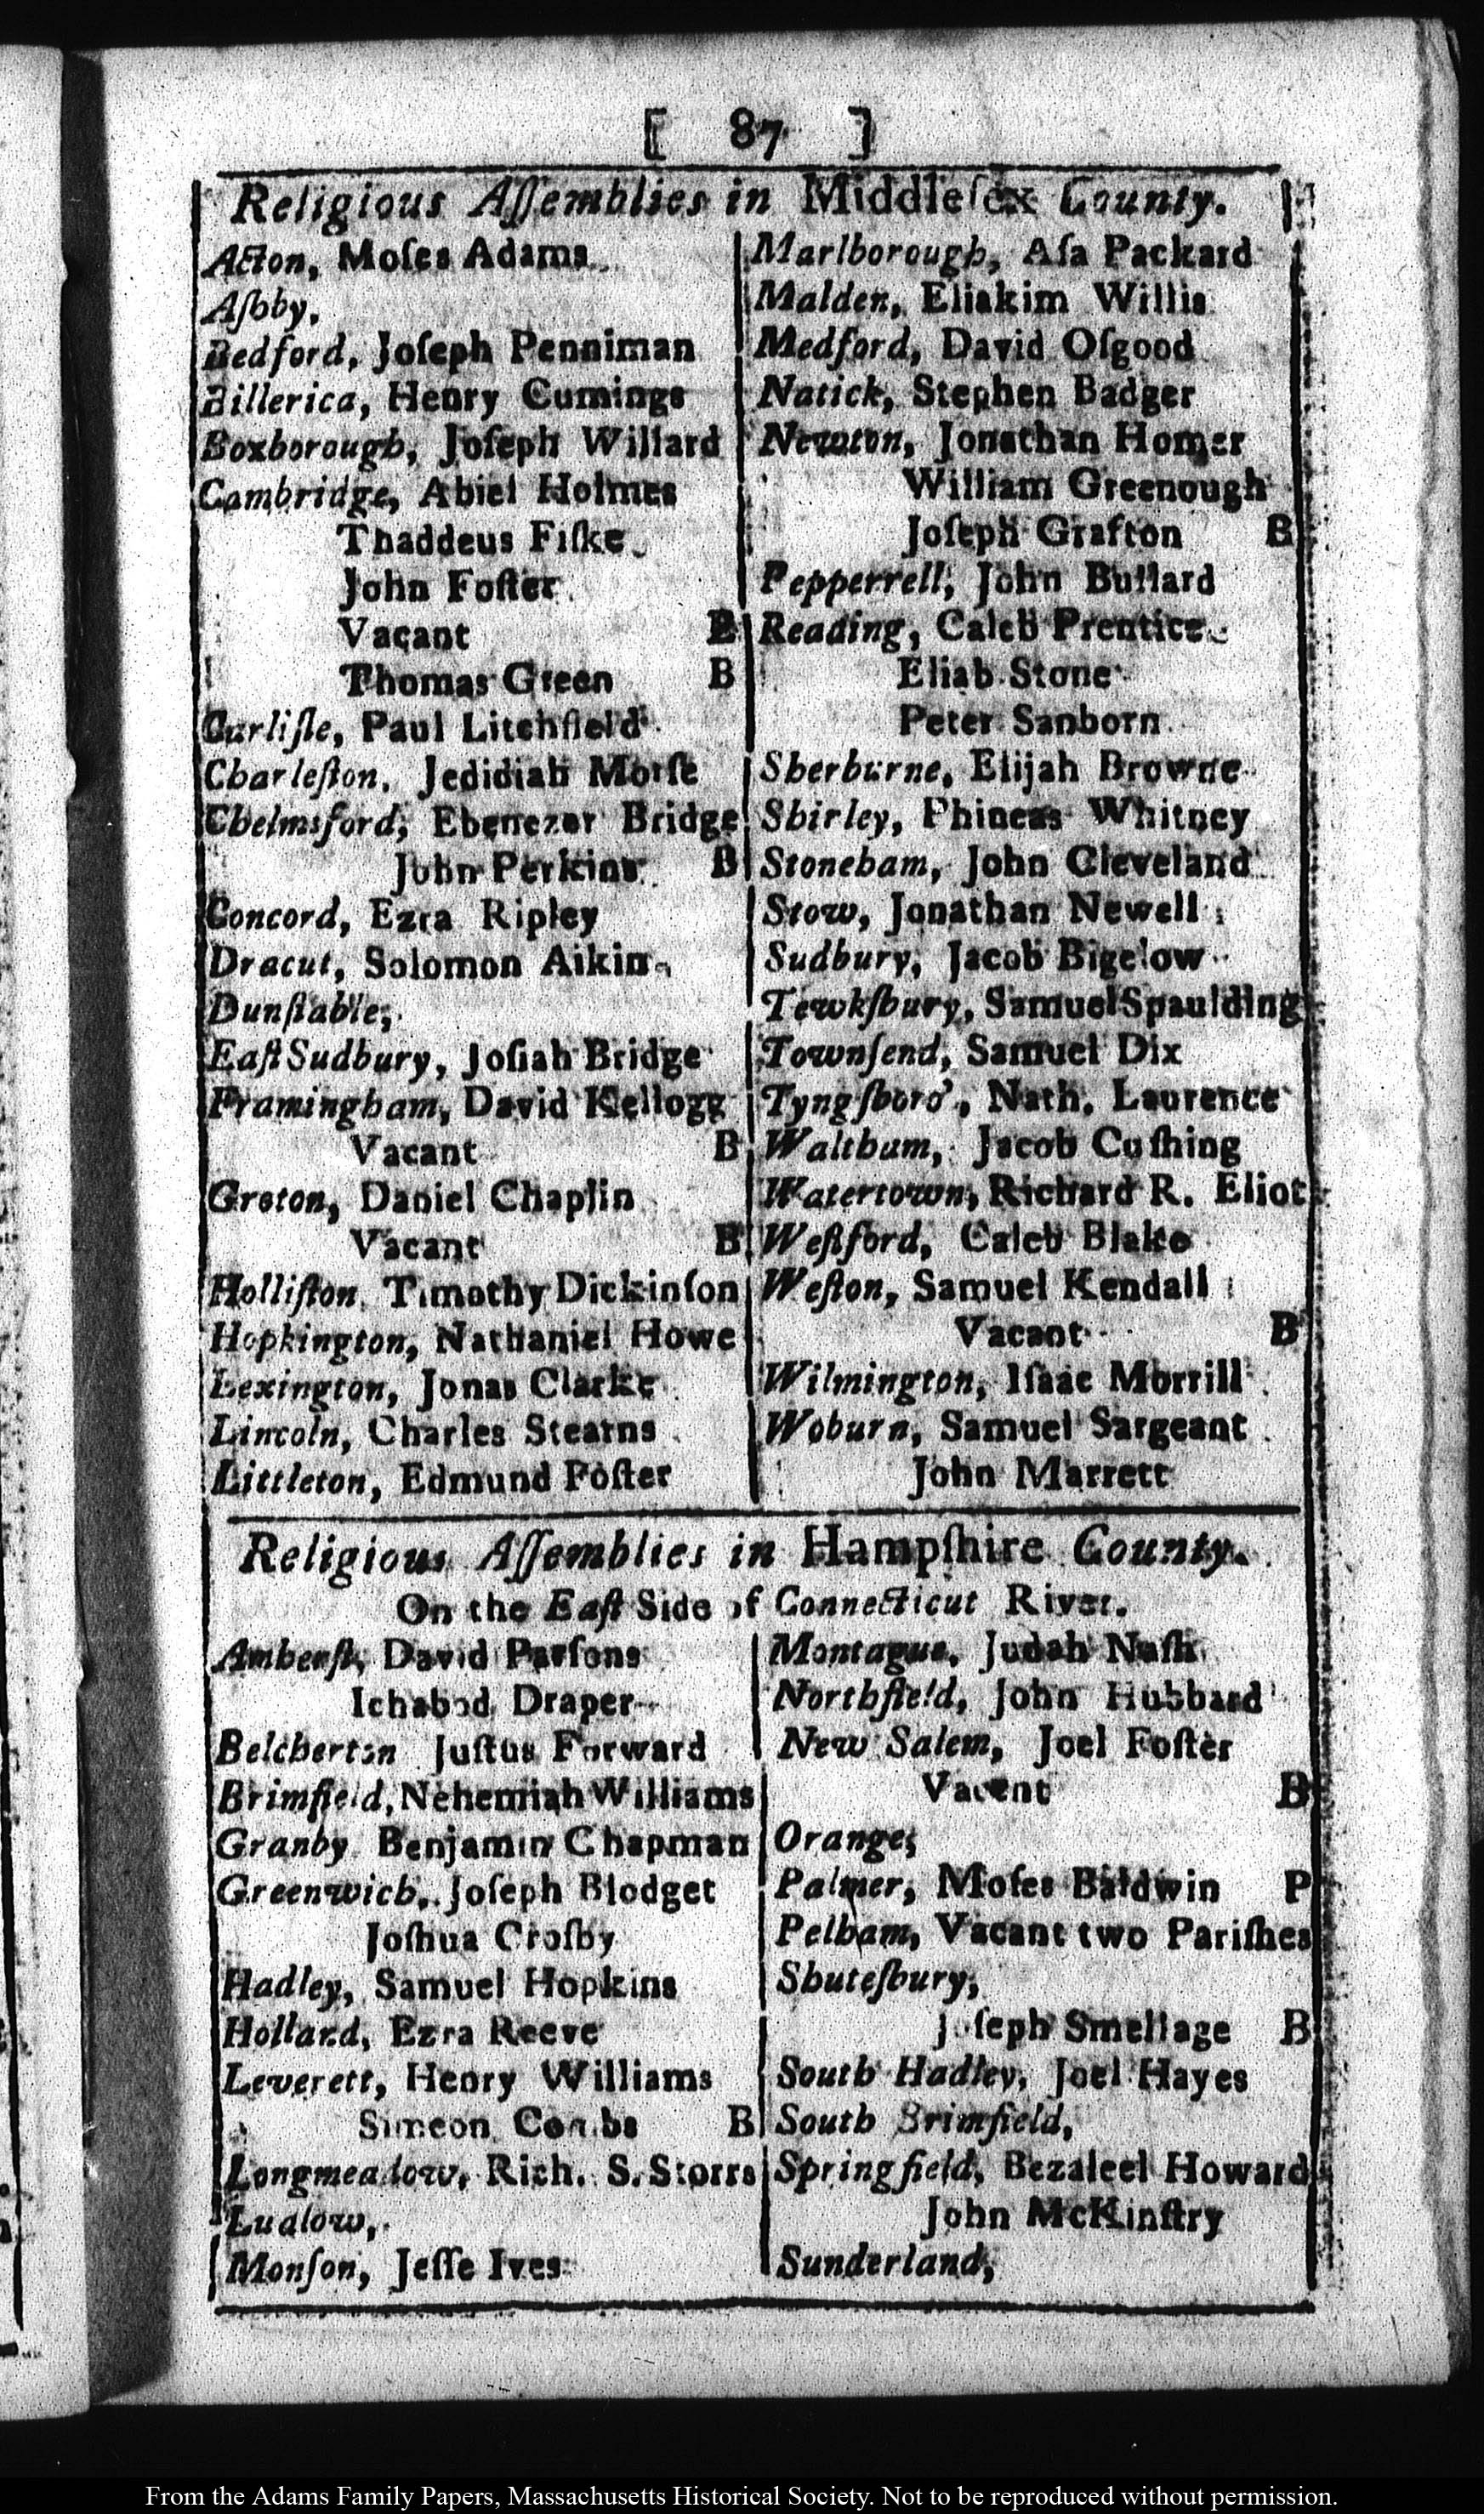 [ 87 ]
Religious Aſſemblies in Middleſex County.
Acton, Moſes Adams
Aſhby,
Bedford, Joſeph Penniman
Billerica, Henry Cumings
Boxborough, Joſeph Willard
Cambridge, Abiel Holmes
Thaddeus Fiſke
John Foſter
Vacant E
Thomas Green B
Carliſle, Paul Litchfield
Charleſton, Jedidiah Morſe
Chelmsford, Ebenezer Bridge
John Perkins B
Concord, Ezra Ripley
Dracut, Solomon Aikin
Dunſtable,
Eaſt Sudbury, Joſiah Bridge
Framingham, David Kellogg
Vacant B
Groton, Daniel Chaplin
Vacant B
Holliſton, Timothy Dickinſon
Hopkington, Nathaniel Howe
Lexington, Jonas Clarke
Lincoln, Charles Stearns
Littleton, Edmund Foſter
Marlborough, Aſa Packard
Malden, Eliakim Willis
Medford, David Oſgood
Natick, Stephen Badger
Newton, Jonathan Homer
William Greenough
Joſeph Grafton B
Pepperrell, John Bullard
Reading, Caleb Prentice
Eliab Stone
Peter Sanborn
Sherburne, Elijah Browne
Shirley, Phineas Whitney
Stoneham, John Cleveland
Stow, Jonathan Newell
Sudbury, Jacob Bigelow
Tewkſbury, Samuel Spaulding
Townſend, Samuel Dix
Tyngſboro', Nath. Laurence
Waltham, Jacob Cuſhing
Watertown, Richard R. Eliot
Weſtford, Caleb Blake
Weſton, Samuel Kendall
Vacant B
Wilmington, Iſaac Morrill
Woburn, Samuel Sargeant
John Marrett
Religious Aſſemblies in Hampſhire County.
On the Eaſt Side of Connecticut River.
Amherſt, David Parſons
Ichabod Draper
Belcherton Juſtus Forward
Brimfield, Nehemiah Williams
Granby Benjamin Chapman
Greenwich, Joſeph Blodget
Joſhua Croſby
Hadley, Samuel Hopkins
Holland, Ezra Reeve
Leverett, Henry Williams
Simeon Combs B
Longmeadow, Rich. S. Storrs
Ludlow,
Monſon, Jeſſe Ives
Montague, Judah Naſh
Northfield, John Hubbard
New Salem, Joel Foſter
Vacent B
Orange,
Palmer, Moſes Baldwin P
Pelham, Vacant two Pariſhes
Shuteſbury,
Joſeph Smellage B
South Hadley, Joel Hayes
South Brimfield,
Springfield, Bezaleel Howard
John McKinſtry
Sunderland,
From the Adams Family Papers, Massachusetts Historical Society. Not to be reproduced without permission.